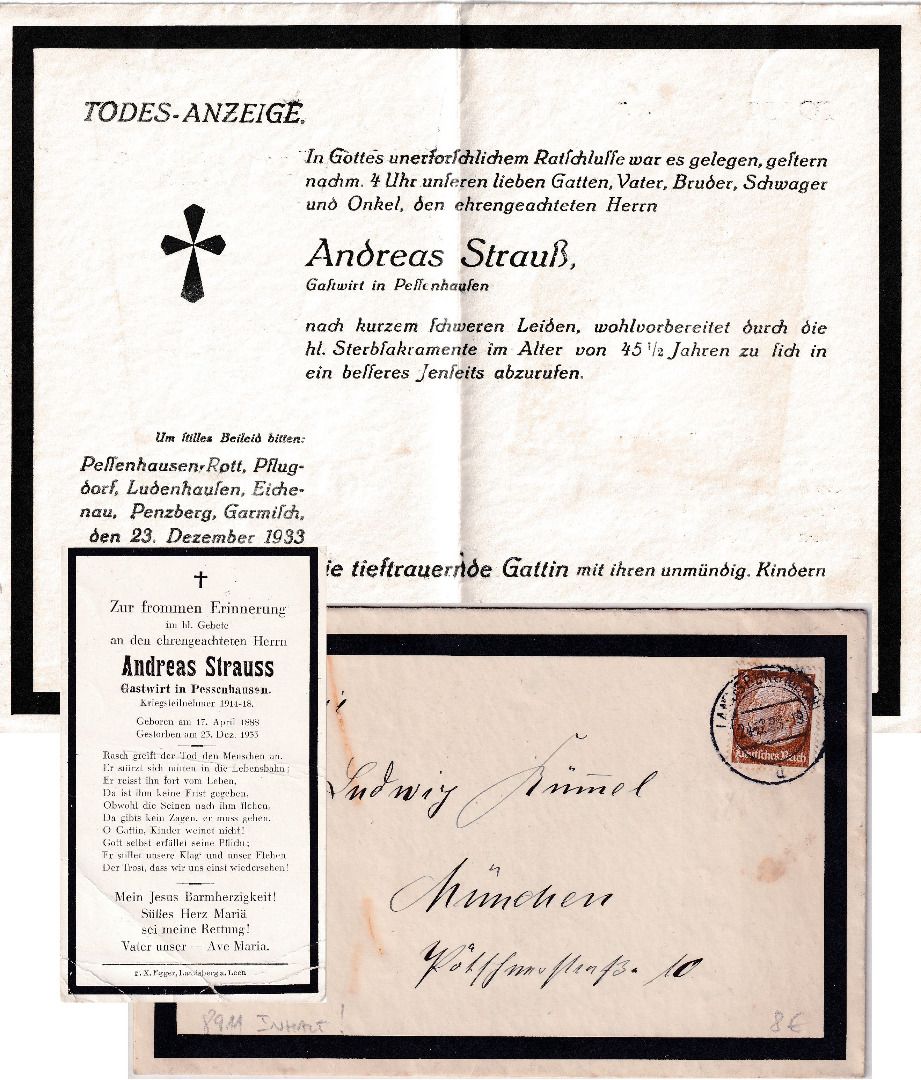 TODES-ANZEIGE.
In Gottes unerforschlichem Ratschlusse war es gelegen, gestern
nachm. 4 Uhr unseren lieben Gatten, Vater, Bruder, Schwager
und Onkel, den ehrengeachteten Herrn
Andreas Strauß,
Gastwirt in Pessenhausen
nach kurzem schweren Leiden, wohlvorbereitet durch die
hl. Sterbsakramente im Alter von 45 1/2 Jahren zu sich in
ein besseres Jenseits abzurufen.
Um stilles Beileid bitten:
Pessenhausen, Rott, Pflug-
dorf, Ludenhausen, Eiche-
nau, Penzberg, Garmisch,
den 23. Dezember 1933
ie tieftrauernde Gattin mit ihren unmündig. Kindern
Zur frommen Erinnerung
im hl. Gebete
an den ehrengeachteten Herrn
Andreas Strauss
Gastwirt in Pessenhausen.
Kriegsteilnehmer 1914-18.
Geboren am 17. April 1888
Gestorben am 23. Dez. 1933
Rasch greift der Tod den Menschen an.
Er stürzt sich mitten in die Lebensbahn;
Er reisst ihn fort vom Leben,
Da ist ihm keine Frist gegeben.
Obwohl die Seinen nach ihm flehen,
Da gibts kein Zagen, er muss gehen.
O Gattin, Kinder weinet nicht!
Gott selbst erfüllet seine Pflicht;
Er stillet unsere Klag' und unser Flehen
Der Trost, dass wir uns einst wiedersehen!
Mein Jesus Barmherzigkeit!
Süßes Herz Mariä
sei meine Rettung!
Vater unser — Ave Maria.
F. X. Egger, Landsberg a. Lech
Deutsches Reich
Ludwig Kümmel
München
Pötschnerstraße 10
8911 INHALT!
8€